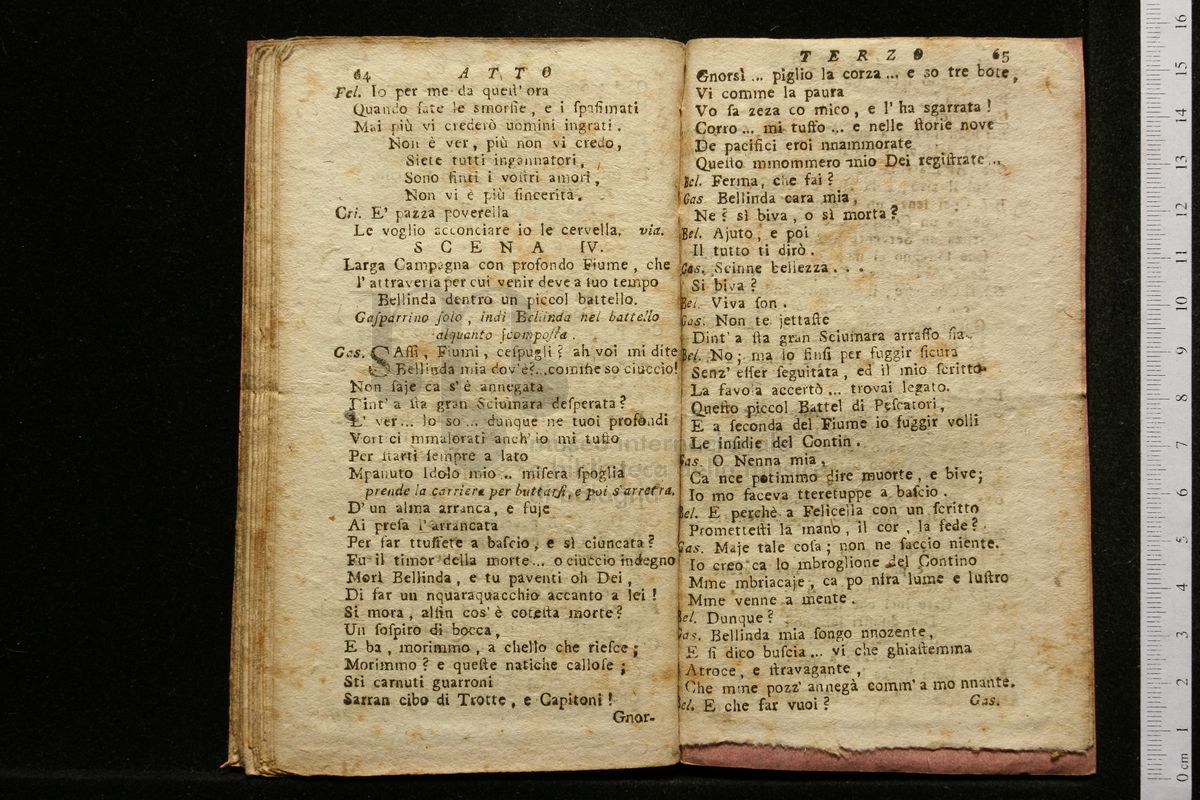 64 A T T O
Fel. Io per me da quest' ora
Quando fate le smorfie, e i spasimati
Mai più vi crederò uomini ingrati.
Non è ver, più non vi credo,
Siete tutti ingannatori,
Sono finti i vostri amori,
Non vi è più sincerità.
Cri. E' pazza poverella
Le voglio acconciare io le cervella. via.
S C E N A IV.
Larga Campagna con profondo Fiume, che
l' attraversa per cui venir deve a suo tempo
Bellinda dentro un piccol battello.
Gasparrino solo, indi Bellinda nel battello
alquanto scomposta.
Gas. SAssi, Fiumi, cespugli? ah voi mi dite
Bellinda mia dov'è?...comme so ciuccio!
Non saje ca s' è annegata
Dint' a sta gran Sciumara desperata?
E' ver... lo so... dunque ne tuoi profondi
Vortici mmalorati anch' io mi tuffo
Per starti sempre a lato
Mpanuto Idolo mio... misera spoglia
prende la carriera per buttarsi, e poi s'arretra.
D' un alma arranca, e fuje
Ai presa l' arrancata
Per far ttuffete a bascio, e sì ciuncata?
Fu il timor della morte... o ciuccio indegno
Morì Bellinda, e tu paventi oh Dei,
Di far un nquaraquacchio accanto a lei!
Si mora, alfin cos' è cotesta morte?
Un sospiro di bocca,
E ba, morimmo, a chello che riesce;
Morimmo? e queste natiche callose;
Sti carnuti guarroni
Sarran cibo di Trotte, e Capitoni!
Gnor-
T E R Z O 65
Gnorsì... piglio la corza... e so tre bote,
Vi comme la paura
Vo fa zeza co mico, e l' ha sgarrata!
Corro... mi tuffo... e nelle storie nove
De pacifici eroi nnammorate
Questo mmommero mio Dei registrate...
Bel. Ferma, che fai?
Gas Bellinda cara mia,
Ne? sì biva, o sì morta?
Bel. Ajuto, e poi
Il tutto ti dirò.
Gas. Scinne bellezza...
Si biva?
Bel. Viva son.
Gas. Non te jettaste
Dint' a sta gran Sciumara arrasso sia.
Bel. No; ma lo finsi per fuggir sicura
Senz' esser seguitata, ed il mio scritto
La favola accertò... trovai legato.
Questo piccol Battel di Pescatori,
E a seconda del Fiume io fuggir volli
Le insidie del Contin.
Gas. O Nenna mia,
Ca nce potimmo dire muorte, e bive;
Io mo faceva tteretuppe a bascio.
Bel. E perchè a Felicella con un scritto
Promettesti la mano, il cor, la fede?
Gas. Maje tale cosa; non ne saccio niente.
Io creo ca lo mbroglione del Contino
Mme mbriacaje, ca po nfra lume e lustro
Mme venne a mente.
Bel. Dunque?
Gas. Bellinda mia songo nnozente,
E si dico buscia... vi che ghiastemma
Atroce, e stravagante,
Che mme pozz' annegà comm' a mo nnante.
Bel. E che far vuoi?
Gas.